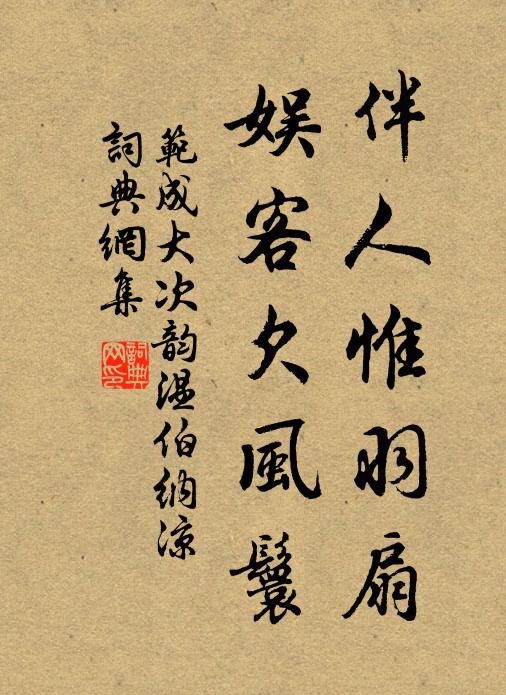 伴人惟羽扇
娱客欠風鬟
範成大次韵温伯納凉
詞典網集
詞典網印